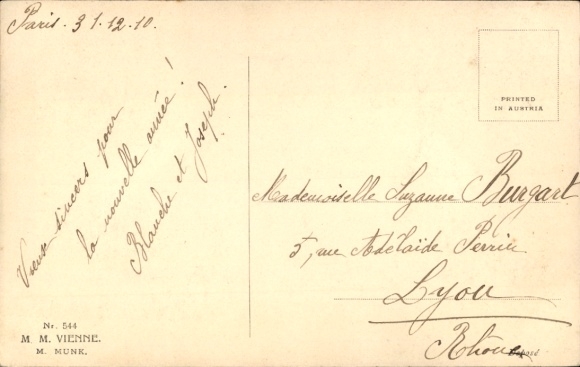 Paris. 31.12.10.
Vœux sincers pour
la nouvelle année!
Blanche et Joseph.
Nr. 544
M. M. VIENNE.
M. MUNK.
PRINTED
IN AUSTRIA
Mademoiselle Suzanne Burgart
5, rue Adélaïde Perrin
Lyon
Rhône